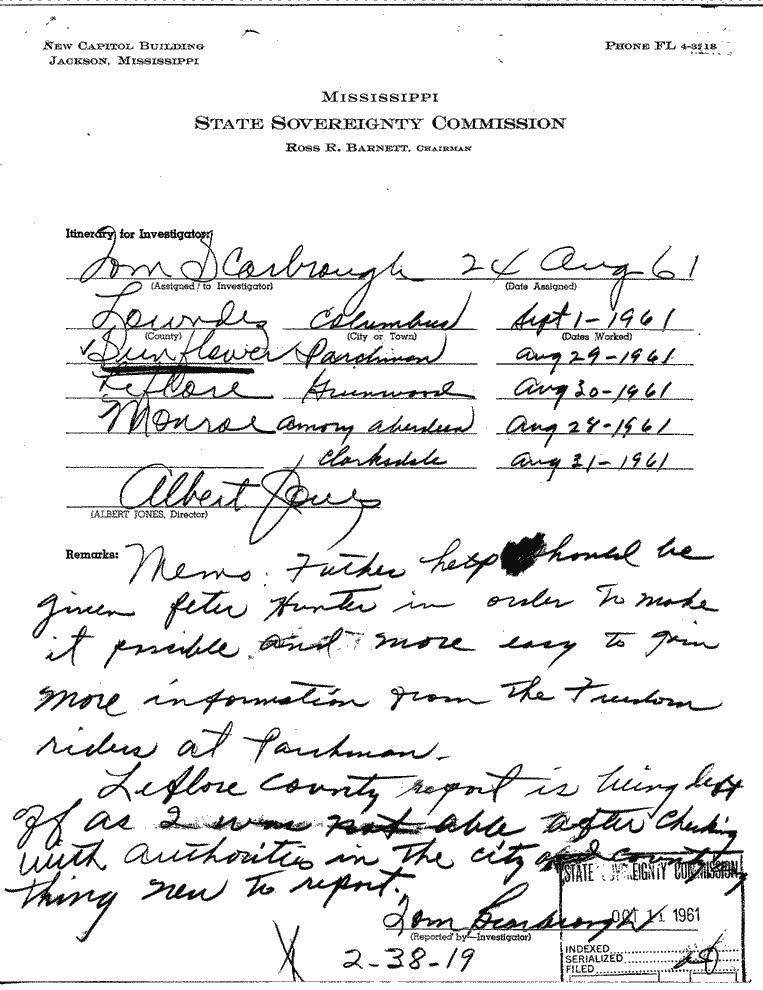 NEW CAPITOL BUILDING
JACKSON, MISSISSIPPI
PHONE FL 4-3218
MISSISSIPPI
STATE SOVEREIGNTY COMMISSION
ROSS R. BARNETT, CHAIRMAN
Itinerary for Investigator:
Tom Scarbrough 24 Aug 61
(Assigned to Investigator) (Date Assigned)
Lowndes Columbus Sept 1-1961
(County) (City or Town) (Dates Worked)
Sunflower Parchman Aug 29-1961
Leflore Greenwood Aug 30-1961
Monroe amory aberdeen Aug 28-1961
Clarksdale Aug 31-1961
Albert Jones
(ALBERT JONES, Director)
Remarks: Memo: Futher help should be
given Peter Hunter in order to make
it possible and more easy to gain
more information from the Freedom
riders at Parchman.
Leflore County report is being left
off as I was not able after checking
with authorities in the city and county
thing new to report.
Tom Scarbrough
(Reported by—Investigator)
2-38-19
STATE SOVEREIGNTY COMMISSION
OCT 11 1961
INDEXED
SERIALIZED
FILED